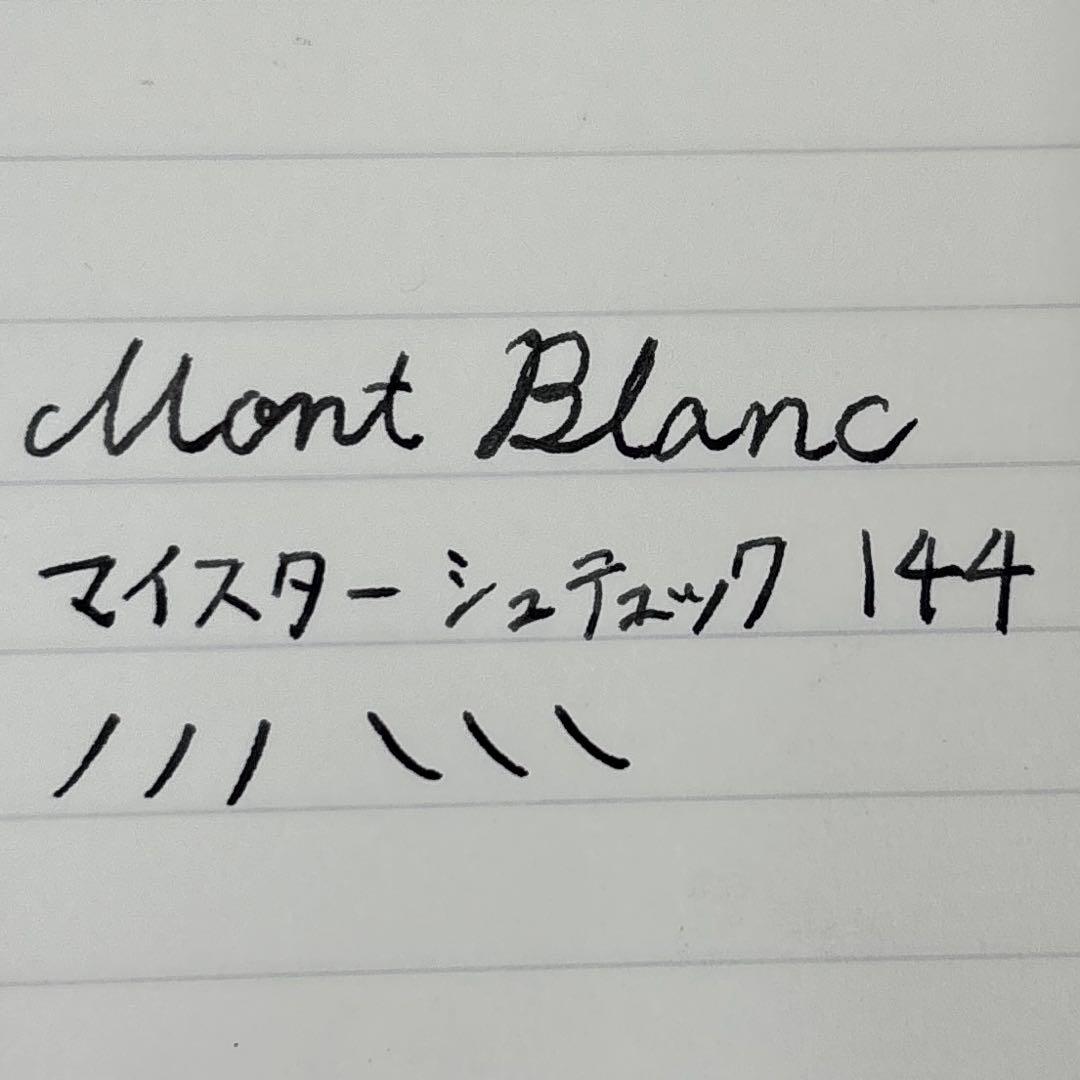 Mont Blanc
マイスターシュテュック 144
/ / / \ \ \